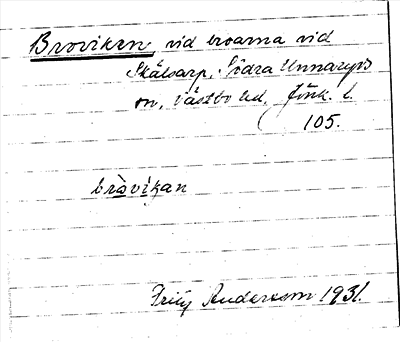 Broviken, vid broarna vid
Skälsarp, Södra Unnaryds
sn, Västbo hd, Jönk. l.
105.
bràvikan
Fritz Andersson 1931.